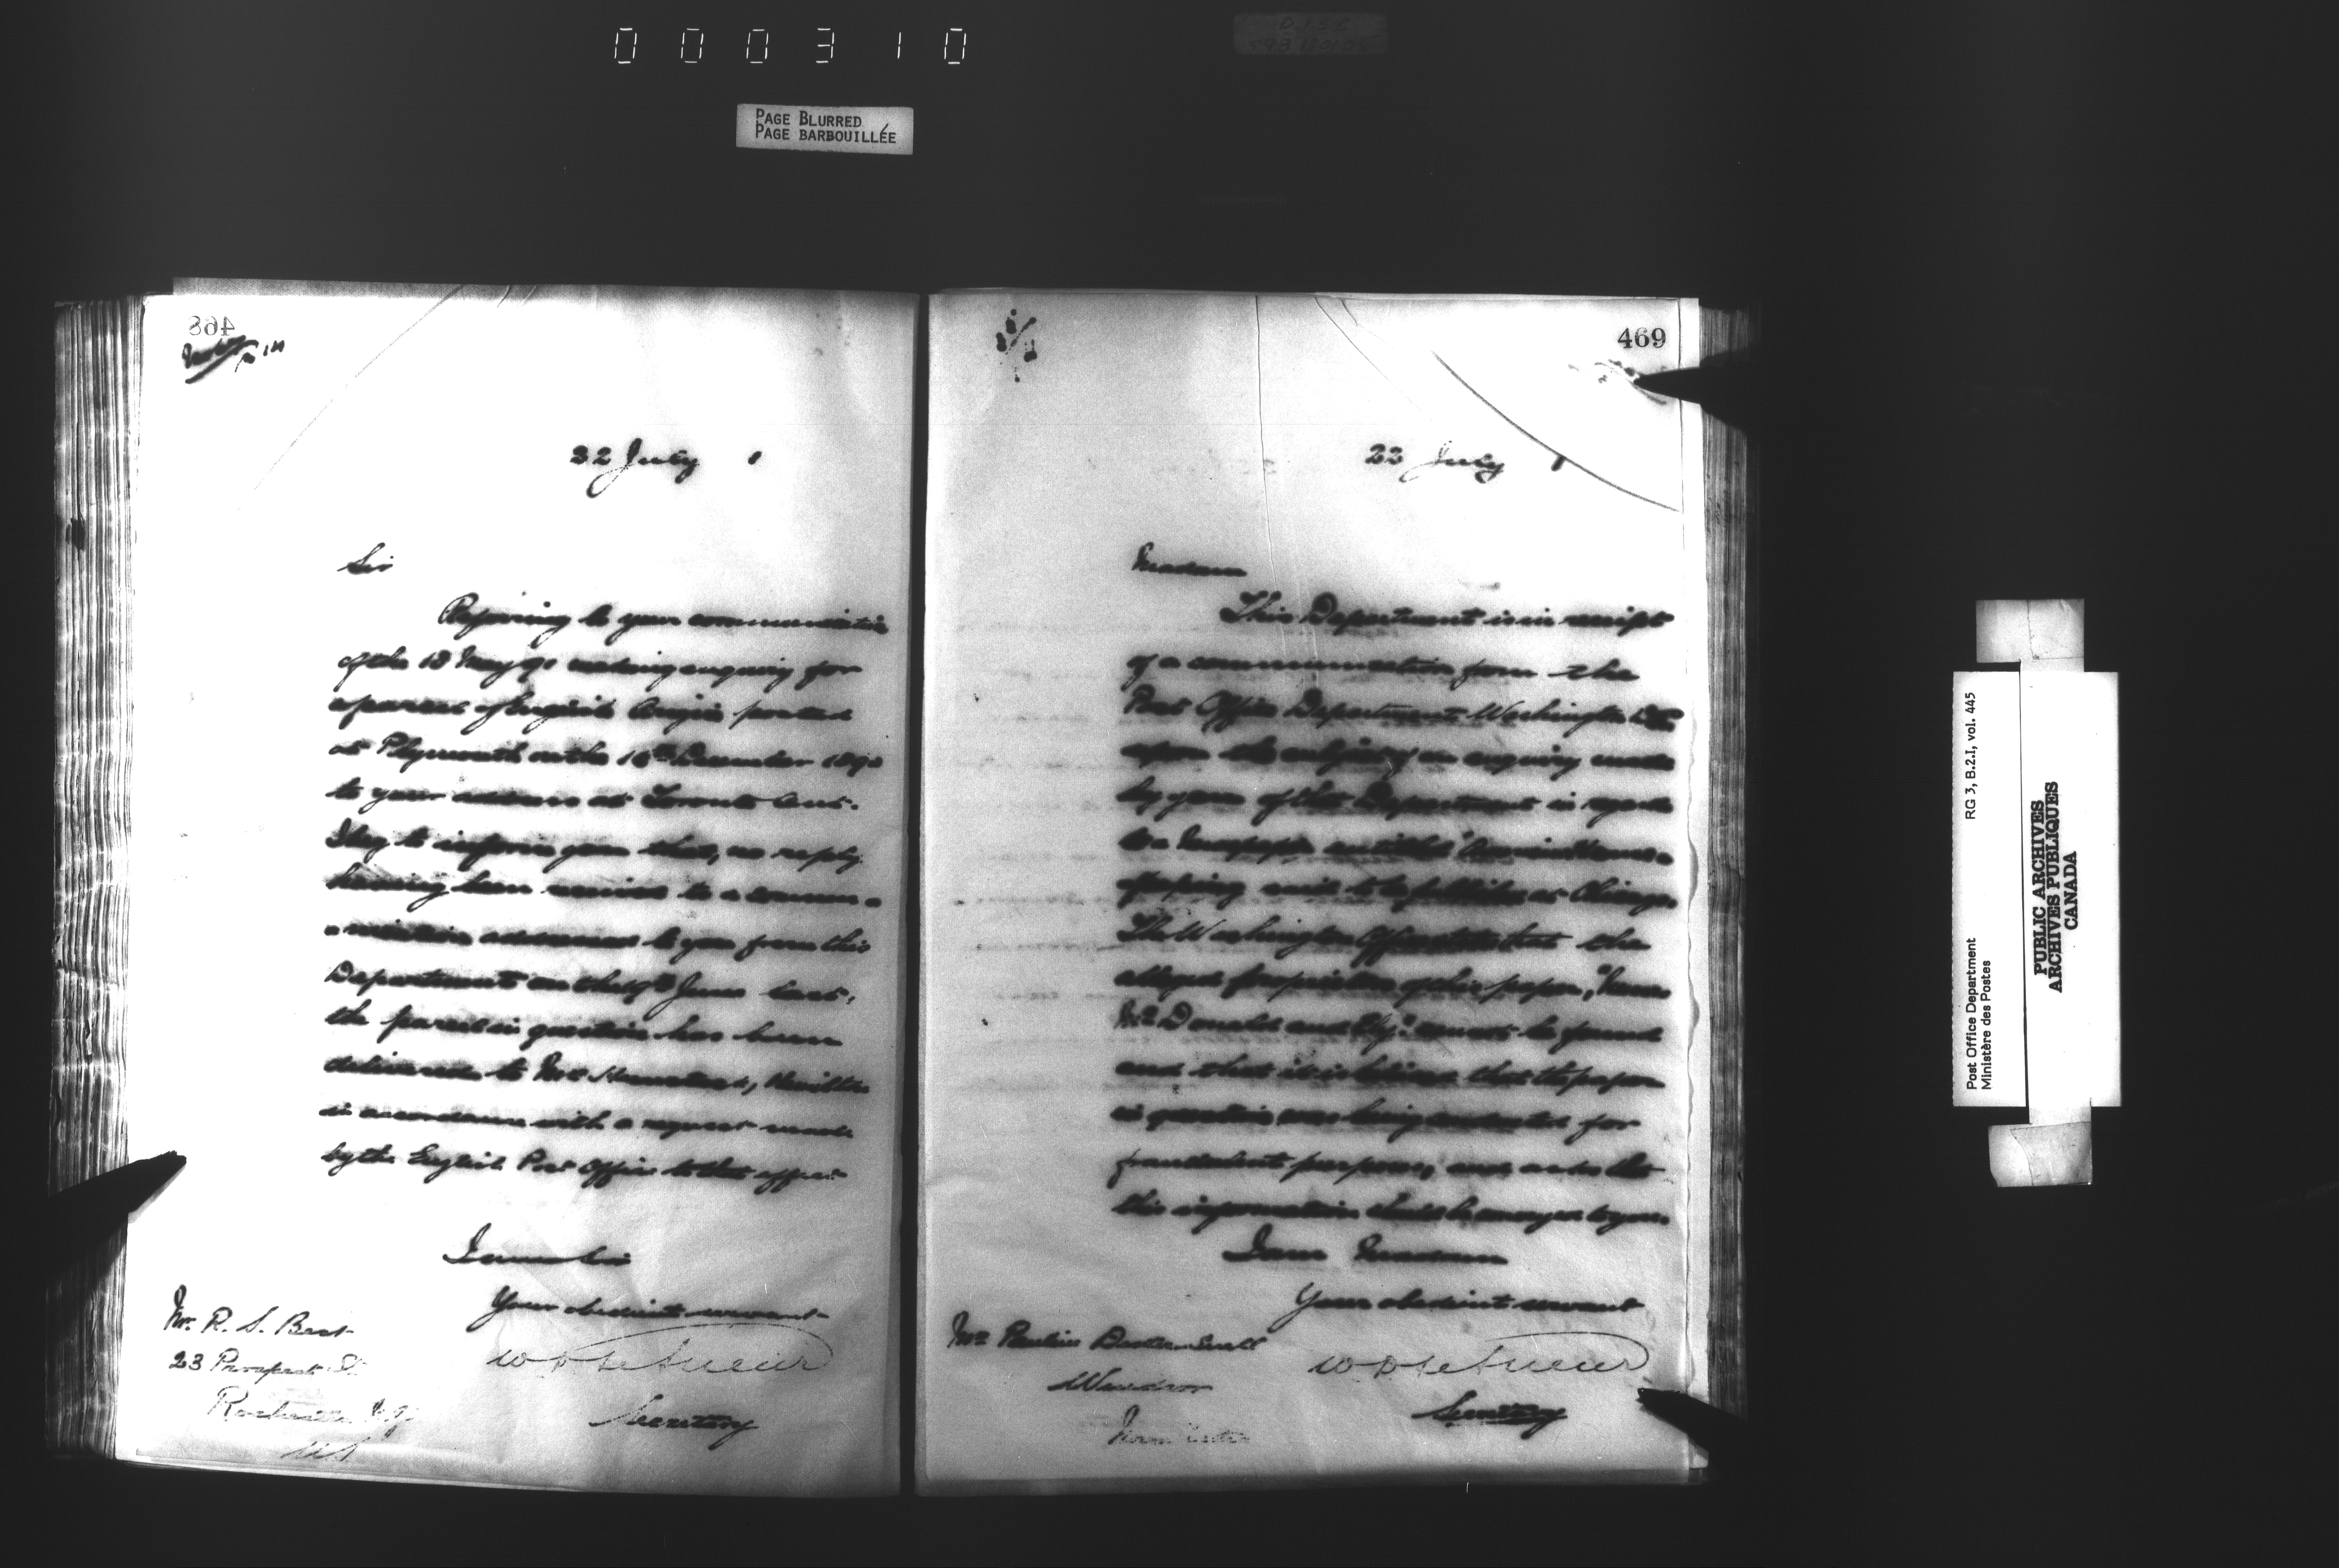 000310
PAGE BLURRED
PAGE BARBOUILLÉE
468
22 July 1
Sir
Referring to your communication
of the 13 May 91 making enquiry for
a parcel of English posted
at Plymouth on the 16th December 1890
to your address at Toronto Ont.
I beg to inform you that, no reply
having been received to a commun-
ication addressed to you from this
Department on the 9th June last,
the parcel in question has been
delivered to Mr
in accordance with a request made
by the English Post Office to that effect
I am Sir
Your obedient servant
W D LeSueur
Secretary
Mr. R. S. Best
23 Prospect St
Rochester N.Y.
U.S.
469
22 July 1
Madam
This Department is in receipt
of a communication from the
Post Office Department Washington D.C.
upon the subject of an enquiry made
by you of this Department in regard
to a Newspaper entitled
said to be published at Chicago.
The Washington Office state that the
alleged proprietors of this paper,
McDonald and cannot be found
and that it is believed that the paper
in question was being conducted for
fraudulent purposes, and asks that
this information should be conveyed to you.
I am Madam
Your obedient servant
W D LeSueur
Secretary
Mrs Pauline
Windsor
Post Office Department
Ministère des Postes
RG 3, B.2.I, vol. 445
PUBLIC ARCHIVES
ARCHIVES PUBLIQUES
CANADA